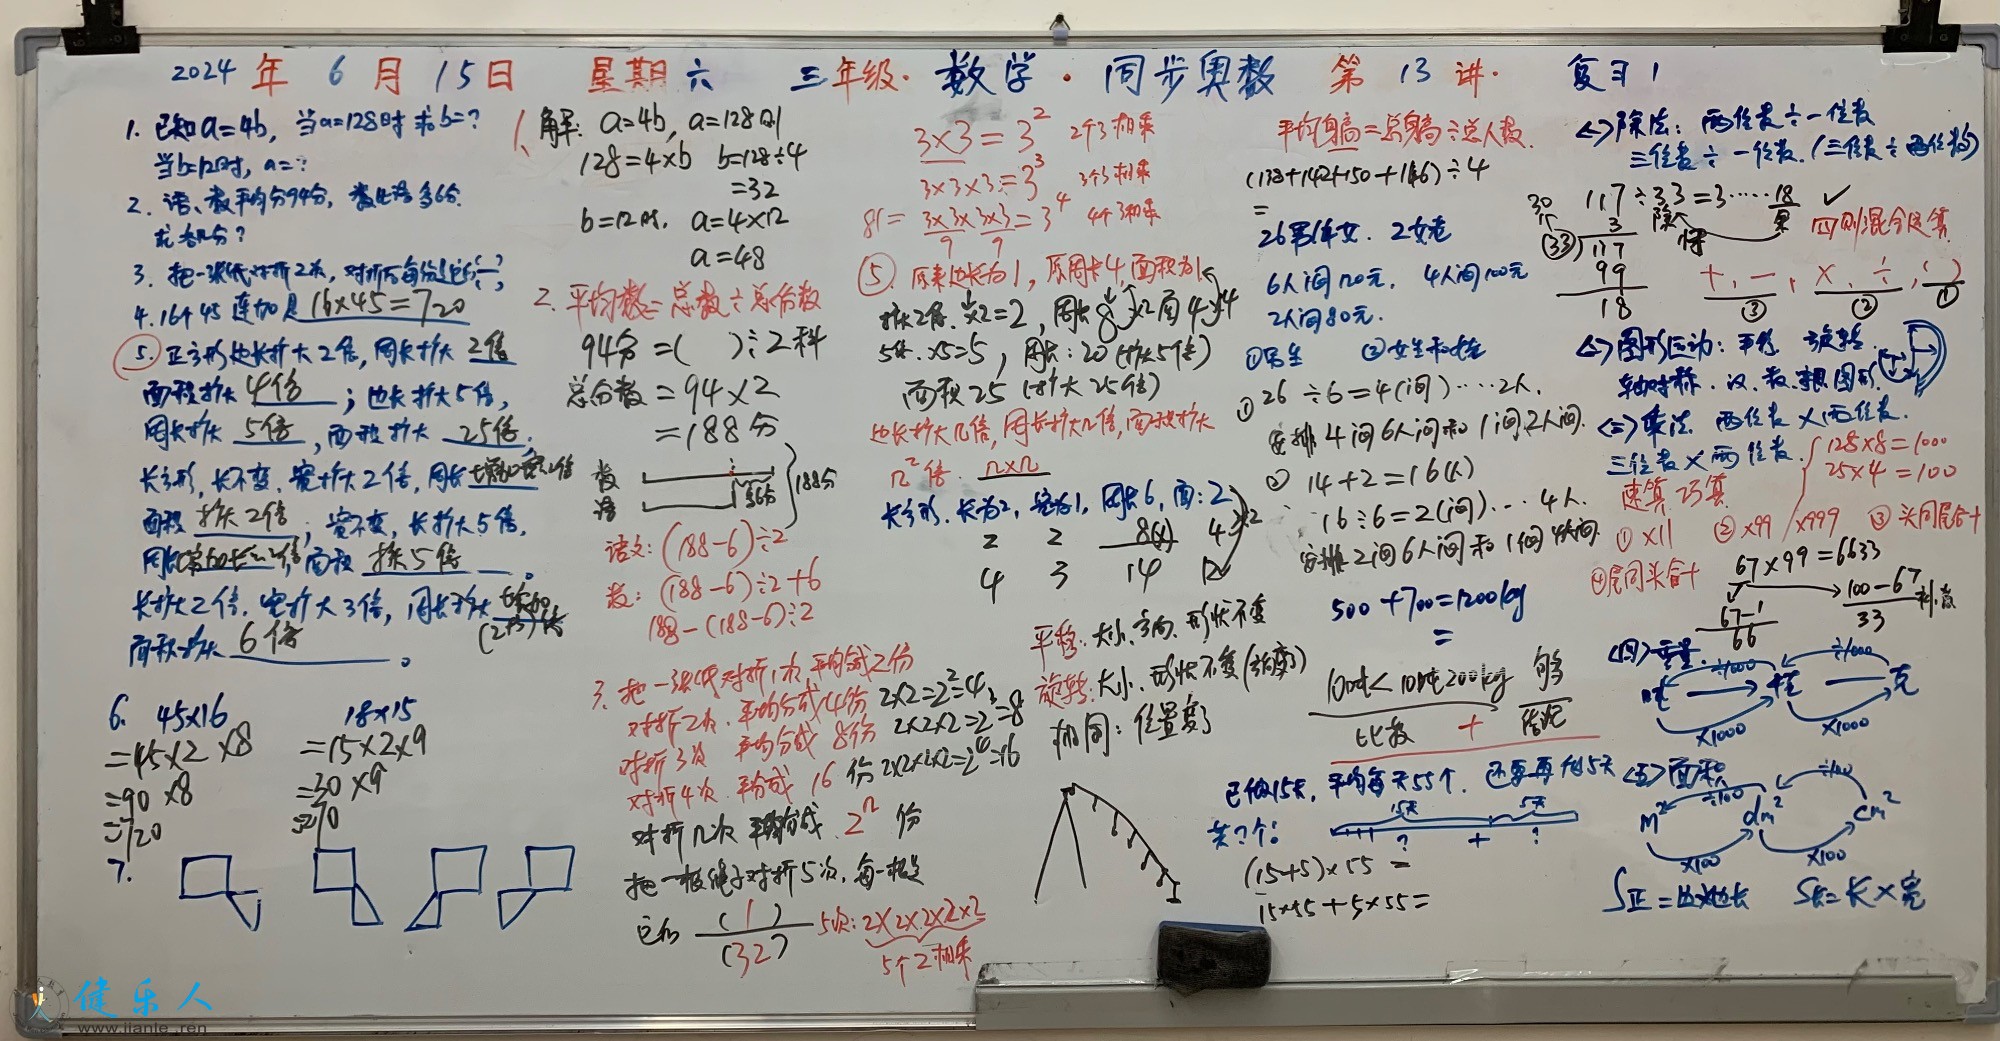 2024年6月15日 星期六 三年级·数学·同步奥数 第13讲· 复习1
1. 已知a=4b, 当a=128时 求b=?
当b=12时, a=?
2. 语、数平均分94分, 数比语多6分.
求各几分?
3. 把一张纸对折2次, 对折后每份是它的
4. 16个45连加是 16×45=720
5. 正方形边长扩大2倍, 周长扩大 2倍
面积扩大 4倍 ; 边长扩大5倍,
周长扩大 5倍 , 面积扩大 25倍.
长方形, 长不变, 宽扩大2倍, 周长
面积 扩大2倍 ; 宽不变, 长扩大5倍,
周长 面积 扩大5倍 。
长扩大2倍, 宽扩大3倍, 周长扩大 增加
(2+3)倍
面积扩大 6倍 。
6. 45×16
=45×2×8
=90×8
=720
18×15
=15×2×9
=30×9
=270
7.
1. 解: a=4b, a=128时
128=4×b b=128÷4
=32
b=12时, a=4×12
a=48
2. 平均数=总数÷总份数
94分=( )÷2科
总分数=94×2
=188分
数
语
多6分
188分
语文: (188-6)÷2
数: (188-6)÷2+6
188-(188-6)÷2
3. 把一张纸对折1次, 平均分成2份
对折2次 平均分成4份 2×2=2²=4
对折3次 平均分成 8份 2×2×2=2³=8
对折4次 平均成 16 份 2×2×2×2=2⁴=16
对折n次 平均分成 2ⁿ 份
把一根绳子对折5次, 每一根是
它的 (1)/(32) 5次: 2×2×2×2×2
5个2相乘
3×3=3² 2个3相乘
3×3×3=3³ 3个3相乘
81= 3×3×3×3=3⁴ 4个3相乘
9 9
⑤. 原来边长为1, 原周长4, 面积为1
扩大2倍. ×2=2, 周长8 ×2 面4 ×4
5倍. ×5=5, 周长: 20 (扩大5倍)
面积25 (扩大25倍)
边长扩大n倍, 周长扩大n倍, 面积扩大
n²倍. n×n
长方形. 长为2, 宽为1, 周长6, 面: 2
2 2 8 4 ×2
4 3 14 12
平移: 大小、方向、形状不变
旋转: 大小、形状不变
相同: 位置变了
平均身高=总身高÷总人数.
(138+142+150+146)÷4
=
26男14女. 2女老
6人间120元, 4人间100元
2人间80元.
①男生 ②女生和女老
① 26÷6=4(间)····2人.
安排4间6人间和1间2人间.
② 14+2=16(人)
16÷6=2(间)··· 4人.
安排2间6人间和1间4人间.
500+700=1200kg
=
10吨<10吨200kg 够
比较 + 结论
已做15天, 平均每天55个. 还要再做5天
共?个?
15天 5天
? + ?
(15+5)×55=
15×55+5×55=
<一>除法: 两位数÷一位数
三位数÷一位数. (三位数÷两位数)
117÷33=3·····18 ✓
30
3
33 117
99
18
四则混合运算
+, -, ×, ÷, ( )
③ ② ①
<二>图形运动: 平移. 旋转.
轴对称.
<三>乘法 两位数×两位数.
三位数×两位数.
125×8=1000
25×4=100
速算 巧算
①×11 ②×99/×999 ③头同尾合十
④尾同头合十
67×99=6633
67-1
66
100-67
33
补数
<四>重量.
÷1000 ÷1000
吨 千克 克
×1000 ×1000
<五>面积
÷100 ÷100
m² dm² cm²
×100 ×100
S正=边×边长 S长=长×宽
健乐人
www.jianle_ren